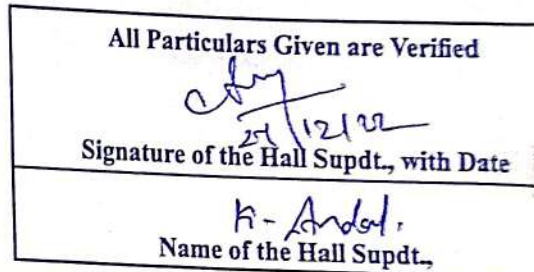 All Particulars Given are Verified
12/22
Signature of the Hall Supdt., with Date
K- Andal.
Name of the Hall Supdt.,